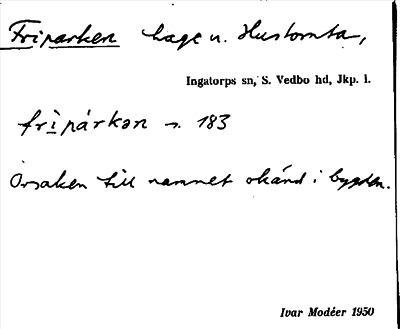 Friparken hage u. Hustomta,
Ingatorps sn, S. Vedbo hd, Jkp. l.
frìpárkən s. 183
Orsaken till namnet okänd i bygden.
Ivar Modéer 1950